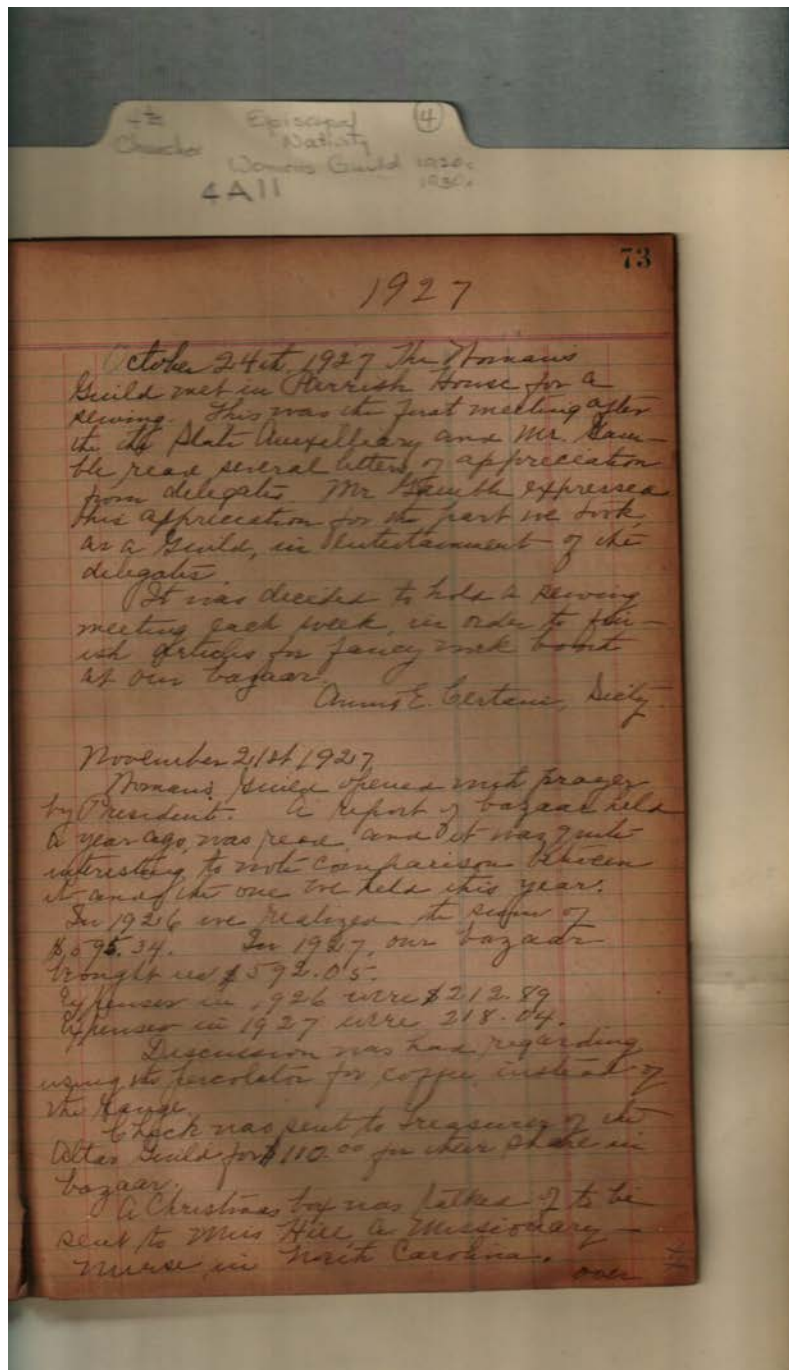 Episcopal ④
Churches Nativity
Womens Guild 1920s
1930s
4A11
73
1927
October 24th, 1927 The Woman's
Guild met in Parrish House for a
sewing. This was the first meeting after
the the State Auxilliary and Mr. Gam-
ble read several letters of appreciation
from delegates. Mr Gamble expressed
his appreciation for the part we took,
as a Guild, in entertainment of the
delegates.
It was decided to hold a sewing
meeting each week, in order to fin-
ish articles for fancy work booth
at our bazaar.
E. Secty.
November 21st, 1927
Woman's Guild opened with prayer
by President. A report of bazaar held
a year ago, was read, and it was quite
interesting to note comparison between
it and the one we held this year.
In 1926 we realized the sum of
$595.34. In 1927, our bazaar
brought us $592.05.
Expenses in 1926 were $212.89
Expenses in 1927 were 218.04.
Discussion was had regarding
using the percolator for coffee, instead of
the range.
Check was sent to Treasurer of the
Altar Guild for $110.00 for their share in
bazaar.
A Christmas box was talked of to be
sent to Miss Hill, a Missionary-
nurse, in North Carolina.
over